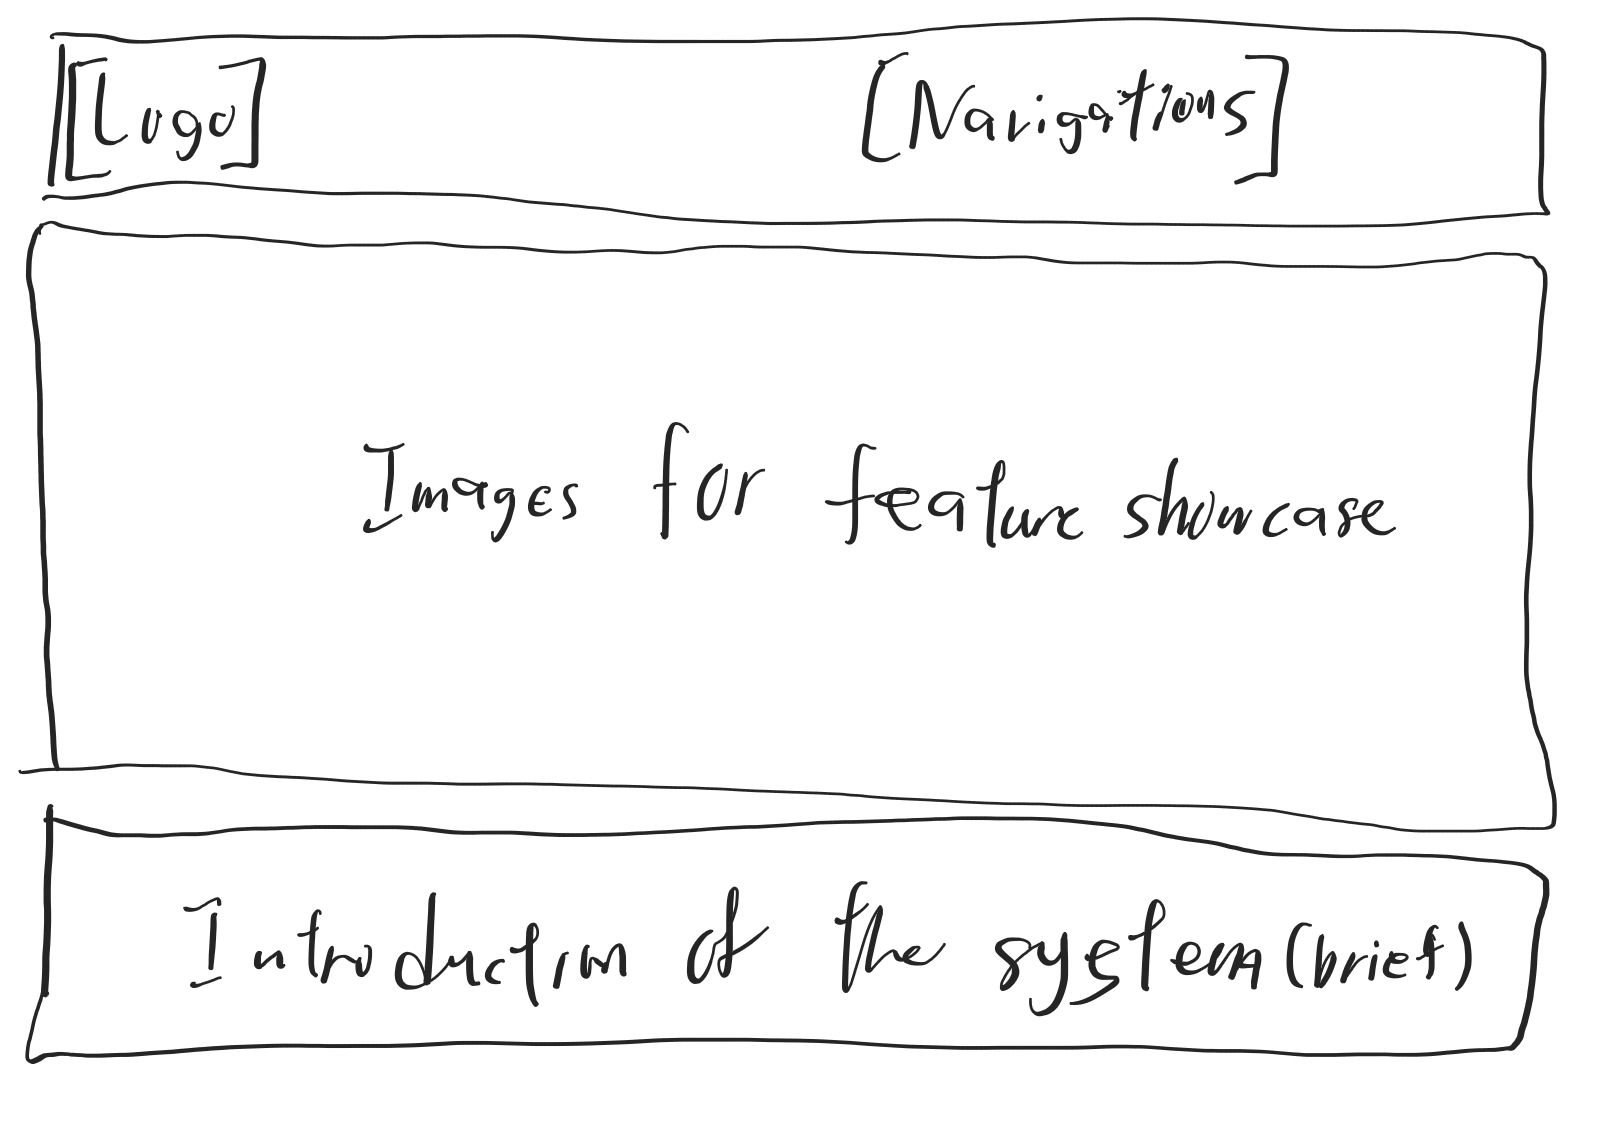 [Logo] [Navigations]
Images for feature showcase
Introduction of the system (brief)